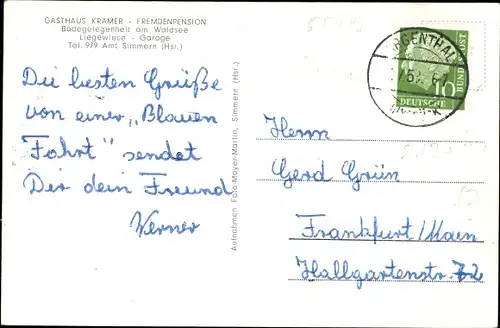 GASTHAUS KRAMER - FREMDENPENSION
Badegelegenheit am Waldsee
Liegewiese - Garage
Tel. 979 Amt Simmern (Hsr.)
Die besten Grüße
von einer „Blauen
Fahrt" sendet
Dir dein Freund
Werner
Aufnahmen Foto-Mayer-Martin, Simmern (Hsr.)
DEUTSCHE
BUNDESPOST
10
Herrn
Gerd Grün
Frankfurt/Main
Hallgartenstr. 72